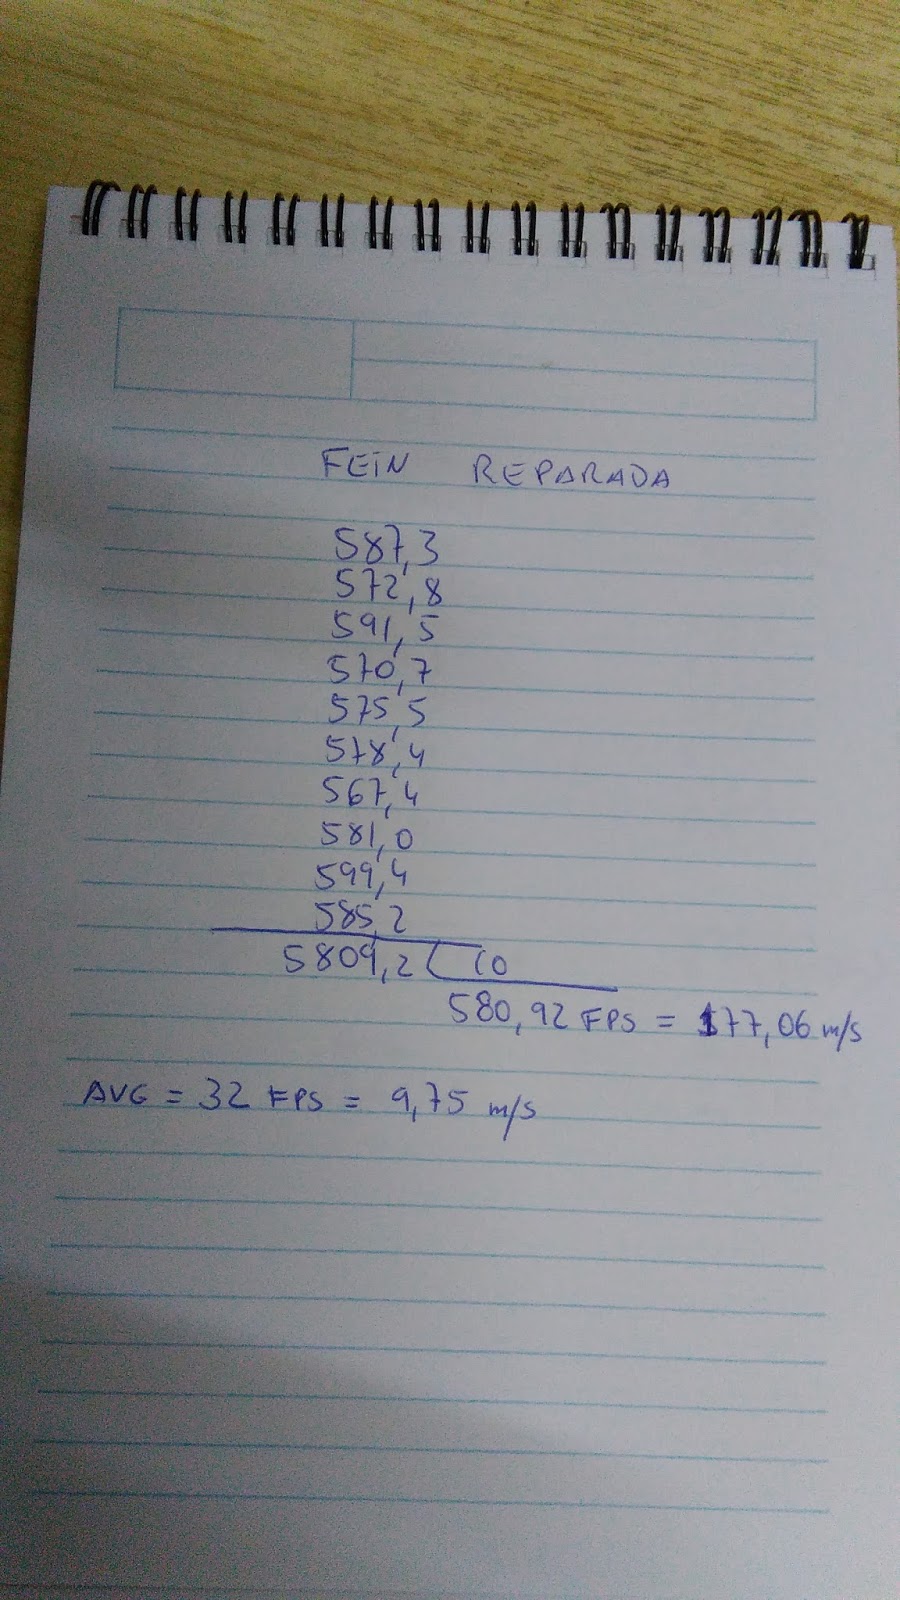 FEIN REPARADA
587,3
572,8
591,5
570,7
575,5
578,4
567,4
581,0
599,4
585,2
5809,2 10
580,92 FPS = 177,06 m/s
AVG = 32 FPS = 9,75 m/s